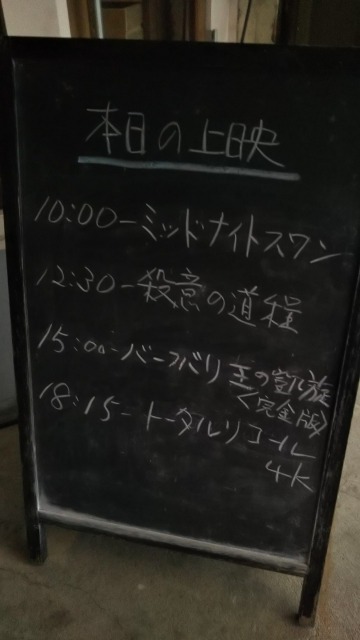 本日の上映
10:00-ミッドナイトスワン
12:30-殺意の道程
15:00-バーフバリ 王の凱旋
<完全版>
18:15-トータルリコール
4K